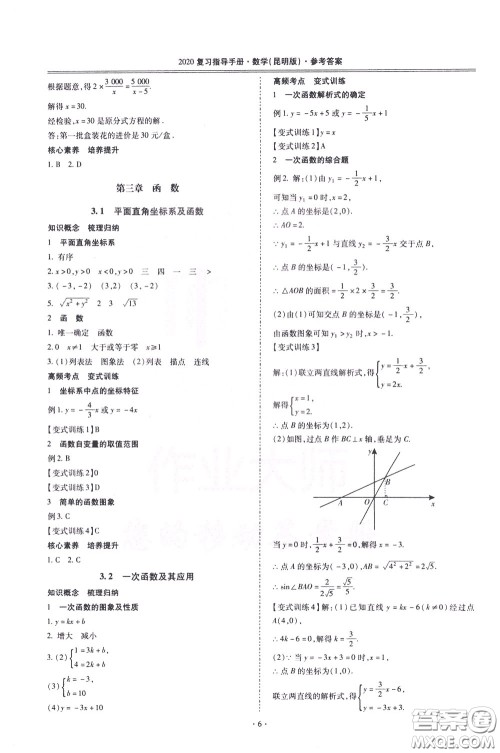 2020 复习指导手册·数学(昆明版)·参考答案
根据题意，得 2×3 000/x=5 000/(x-5).
解得 x=30.
经检验，x=30 是原分式方程的解.
答：第一批盒装花的进价是 30 元/盒.
核心素养 培养提升
1. B 2. D
第三章 函 数
3.1 平面直角坐标系及函数
知识概念 梳理归纳
1 平面直角坐标系
1. 有序
2. x>0,y>0 x<0,y>0 三 四 一 三 >
3. (-3,-2) (3,2) (-3,2)
5. √(x²+y²) 2 3 √13
2 函 数
1. 唯一确定 函数
2. x≠0 x≠1 大于或等于零 x≥1
3. (1)列表法 图象法 (2)列表 描点 连线
高频考点 变式训练
1 坐标系中点的坐标特征
例 1. y=-4/3 x 或 y=-4x
【变式训练 1】B
2 函数自变量的取值范围
例 2. B
【变式训练 2】D
【变式训练 3】D
3 简单的函数图象
例 3. C
【变式训练 4】C
核心素养 培养提升
1. B 2. B
3.2 一次函数及其应用
知识概念 梳理归纳
1 一次函数的图象及性质
1. y=kx+b
2. 增大 减小
3. (2) {1=k+b, 4=2k+b
(3) {k=-3, b=10
(4) y=-3x+10
高频考点 变式训练
1 一次函数解析式的确定
例 1. y=-5x+5 或 y=-x+1
【变式训练 1】y=x
【变式训练 2】A
2 一次函数的综合题
例 2. 解：(1)由 y₁=-1/2 x+1,
可知当 y₁=0 时，x=2,
∴点 A 的坐标是(2,0).
∴AO=2.
∵y₁=-1/2 x+1 与直线 y₂=-3/2 x 交于点 B,
∴点 B 的坐标是(-1,3/2).
∴△AOB 的面积=1/2×2×3/2=3/2.
(2)由(1)可知交点 B 的坐标是(-1,3/2),
由函数图象可知 y₁>y₂ 时，x>-1.
【变式训练 3】
解：(1)联立两直线解析式，得{y=1/2 x+3/2, y=2x.
解得{x=1, y=2.
∴点 B 的坐标为(1,2).
(2)如图，过点 B 作 BC⊥x 轴，垂足为点 C.
y
B
A
O
C
x
当 y=1/2 x+3/2=0 时，解得 x=-3.
∴点 A 的坐标为(-3,0), AB=√(4²+2²)=2√5.
∴sin∠BAO=2/(2√5)=√5/5.
【变式训练 4】解：(1)已知直线 y=kx-6(k≠0)经过点
A(4,0),
∴4k-6=0, 解得 k=3/2.
(2)∵当 x=-3 时，y=-3x=9,
∴点 B 的坐标为(-3,9).
联立两直线的解析式，得{y=3/2 x-6, y=-3x.
·6·
作业大师
答案圈